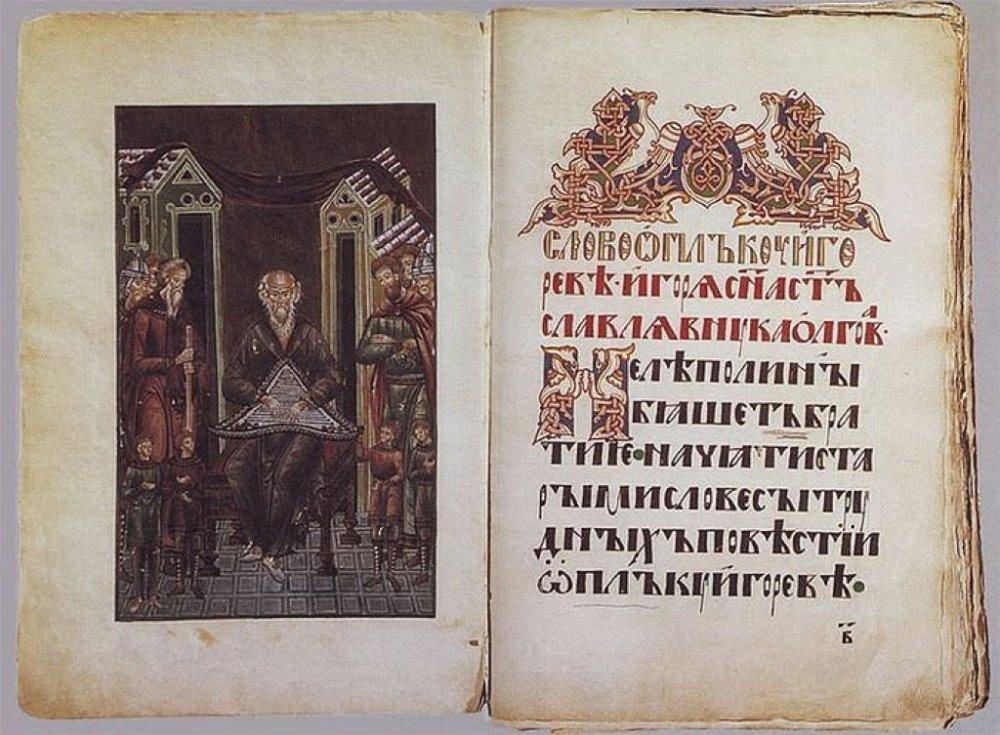 СЛОВОѠПЛЪКꙋИ҆ГО
РЕВѢ·И҆ГОРѦСН҃АСТ҃Ъ
СЛАВЛѦВНꙋКАОЛГОВⷶ·
НЕЛѢПОЛИНЫ
БꙖШЕТЪБРА
ТИѤ·НАЧꙖТИСТА
РЫМИСЛОВЕСЫТРꙋ
ДНЫХЪПОВѢСТІЙ
ѠПЛЪКꙋИ҆ГОРЕВѢ·